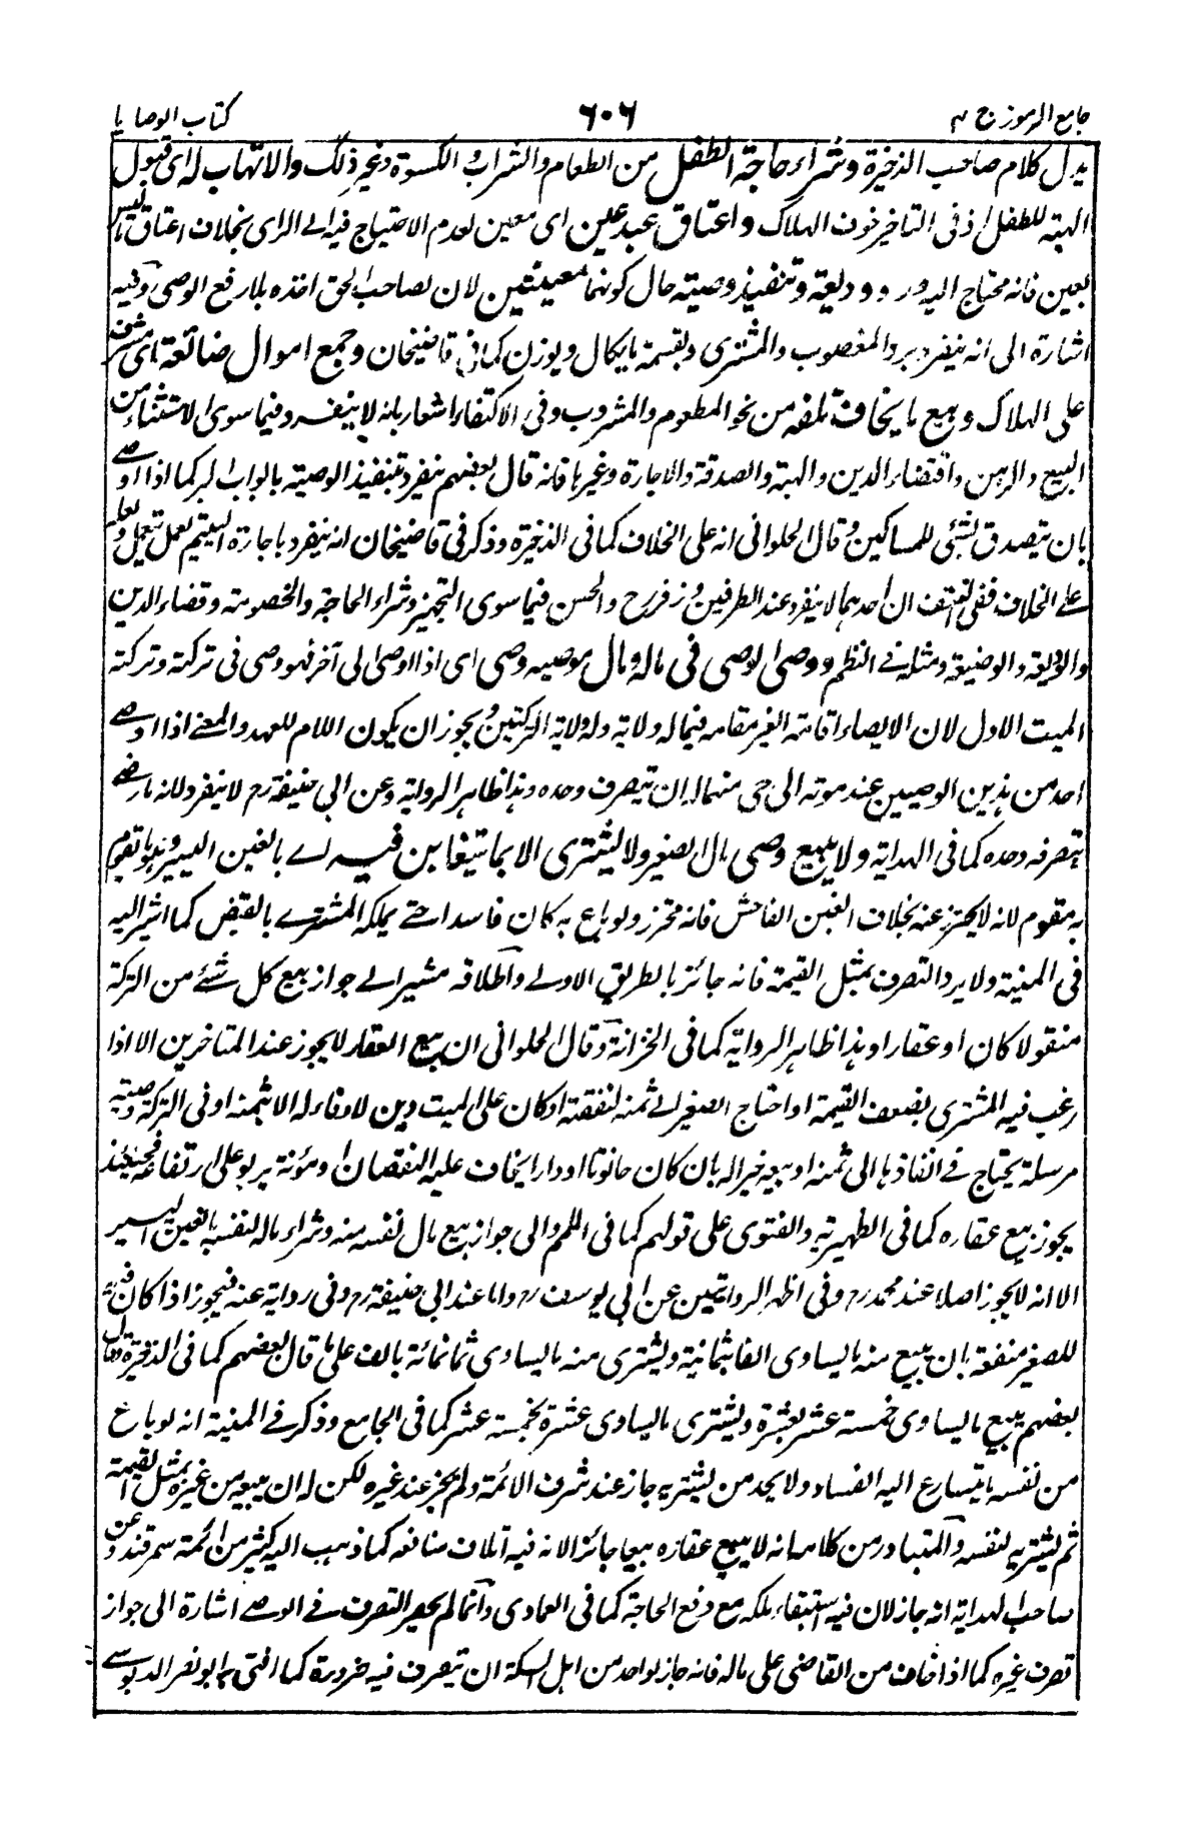 جامع الرموز ج ٢ ٦٠٦ كتاب الوصايا
يدل كلام صاحب الذخيرة وشراء حاجة الطفل من الطعام والشراب والكسوة وغير ذلك والاتهاب له اى قبول
الهبة للطفل اذ فى التاخير خوف الهلاك واعتاق عبد عين اى معين لعدم الاحتياج فيه الى الراى بخلاف اعتاق ما ليس
بعين فانه محتاج اليه ورد وديعة وتنفيذ وصيته حال كونهما معينتين لان لصاحب الحق اخذه بلا رفع الوصى وفيه
اشارة الى انه ينفرد برد المغصوب والمشترى وبقسمة ما يكال ويوزن كما فى قاضيخان وجمع اموال ضائعة اى مشرف
على الهلاك وبيع ما يخاف تلفه من نحو المطعوم والمشروب وفى الاكتفاء اشعار بانه لا ينفرد فيما سوى الاستثناء من
البيع والرهن واقتضاء الدين والهبة والصدقة والاجارة وغيرها فانه قال بعضهم ينفرد بتنفيذ الوصية بابواب البر كما اذا اوصى
بان يتصدق بشئ للمساكين وقال الحلوانى انه على الخلاف كما فى الذخيرة وذكر فى قاضيخان انه ينفرد باجارة اليتيم لعمل يتعمل ولعله
على الخلاف ففى النتف ان احدهما لا ينفرد عند الطرفين وزفر رح والحسن فيما سوى التجهيز وشراء الحاجة والخصومة وقضاء الدين
والوديعة والوضيعة ومثله فى النظم ووصى الوصى فى ماله ومال موصيه وصى اى اذا اوصى الى آخر فهو وصى فى تركته وتركة
الميت الاول لان الايصاء اقامة الغير مقامه فيما له ولاية وله ولاية التركتين ويجوز ان يكون اللام للعهد والمعنى اذا اوصى
احد من هذين الوصيين عند موته الى حى منهما له ان يتصرف وحده وهذا ظاهر الرواية وعن ابى حنيفة رح لا ينفرد لانه ما رضى
بتصرفه وحده كما فى الهداية ولا يبيع وصى مال الصغير ولا يشترى الا بما يتغابن فيه اى بالغبن اليسير وهو ما تقوم
به مقوم لانه لا يحترز عنه بخلاف الغبن الفاحش فانه محترز ولو باع به كان فاسدا حتى يملكه المشترى بالقبض كما اشير اليه
فى المنية ولا يرد التصرف بمثل القيمة فانه جائز بالطريق الاولى واطلاقه مشير الى جواز بيع كل شئ من التركة
منقولا كان او عقارا وهذا ظاهر الرواية كما فى الخزانة وقال الحلوانى ان بيع العقار لا يجوز عند المتاخرين الا اذا
رغب فيه المشترى بضعف القيمة او احتاج الصغير الى ثمنه لنفقته او كان على الميت دين لا وفاء له الا بثمنه او فى التركة وصية
مرسلة يحتاج فى انفاذها الى ثمنه او بيعه خير اله بان كان حانوتا او دارا يخاف عليه النقصان او مؤنة يربو على ارتفاعه فحينئذ
يجوز بيع عقاره كما فى الظهيرية والفتوى على قولهم كما فى اللمم والى جواز بيع مال نفسه منه وشراء ماله لنفسه بالغبن اليسير
الا انه لا يجوز اصلا عند محمد رح وفى اظهر الروايتين عن ابى يوسف رح واما عند ابى حنيفة رح وفى رواية عنه فيجوز اذا كان فيه
للصغير منفعة بان يبيع منه ما يساوى الفا بثمانمائة ويشترى منه ما يساوى ثمانمائة بالف على ما قال بعضهم كما فى الذخيرة وقال
بعضهم يبيع ما يساوى خمسة عشر بعشرة ويشترى ما يساوى عشرة بخمسة عشر كما فى الجامع وذكر فى المنية انه لو باع
من نفسه ما يتسارع اليه الفساد ولا يجد من يشتريه جاز عند شرف الائمة ولم يجز عند غيره لكن له ان يبيعه من غيره بمثل القيمة
ثم يشتريه لنفسه والمتبادر من كلامه انه لا يبيع عقاره بيعا جائزا لانه فيه اتلاف منافعه كما ذهب اليه كثير من ائمة سمرقند وعن
صاحب الهداية انه جاز لان فيه استبقاء ملكه مع دفع الحاجة كما فى العمادى وانما لم يحصر التصرف فى الوصى اشارة الى جواز
تصرف غيره كما اذا خاف من القاضى على ماله فانه جاز لواحد من اهل السكة ان يتصرف فيه ضرورة كما افتى به ابو نصر الدبوسى